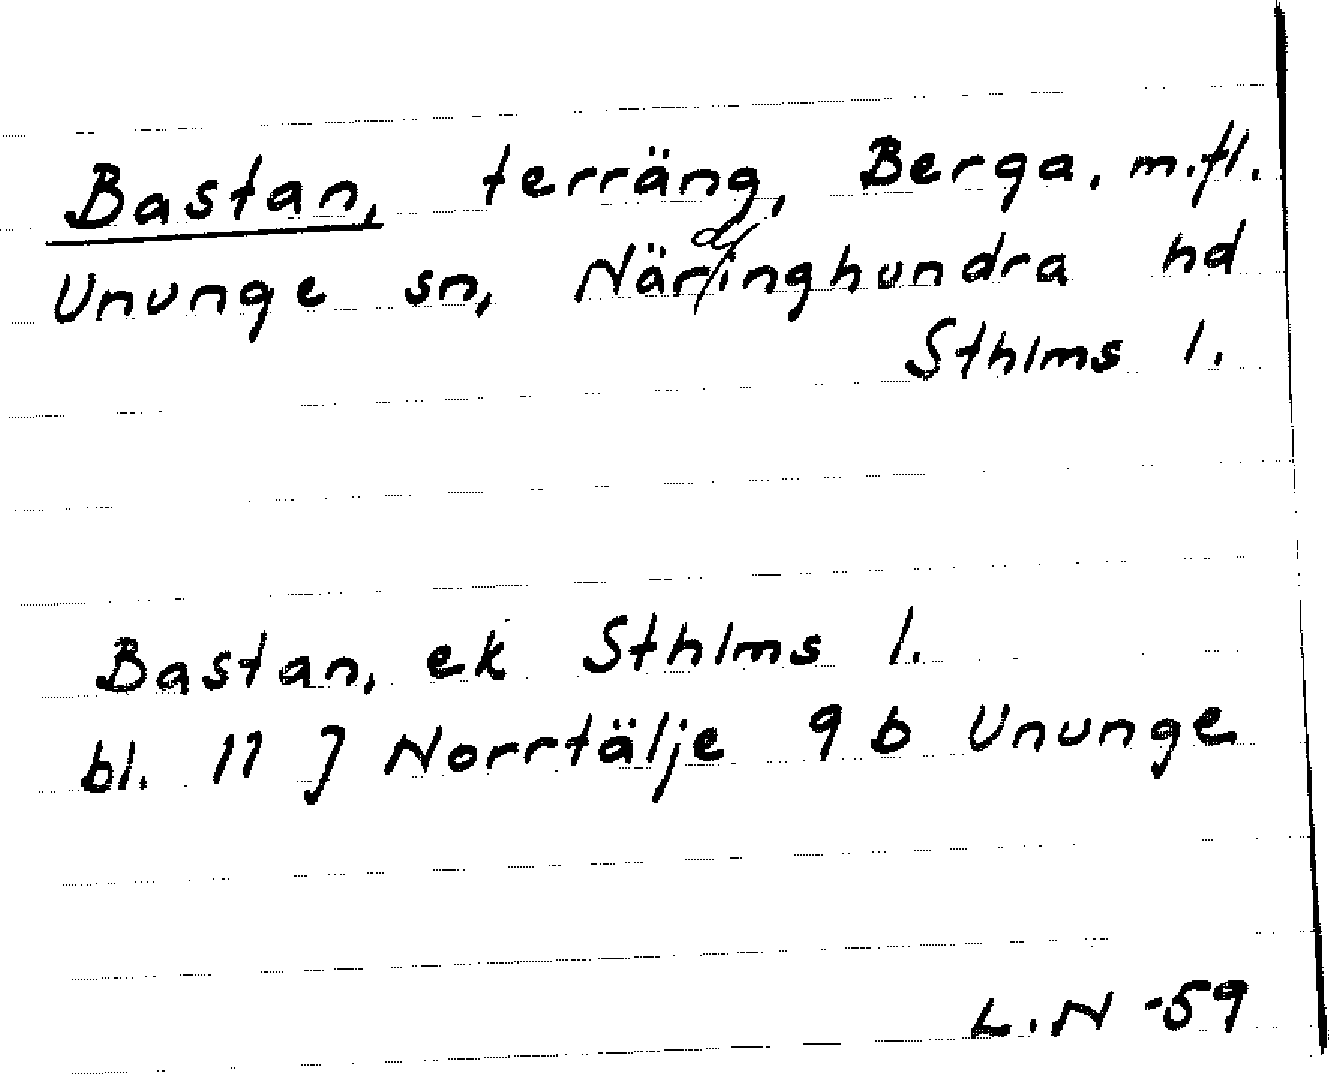 Bastan, terräng, Berga. m.fl.
Ununge sn, Närdinghundra hd
Sthlms l.
Bastan, ek Sthlms l.
bl. 11 J Norrtälje 9 b Ununge
L.N -59